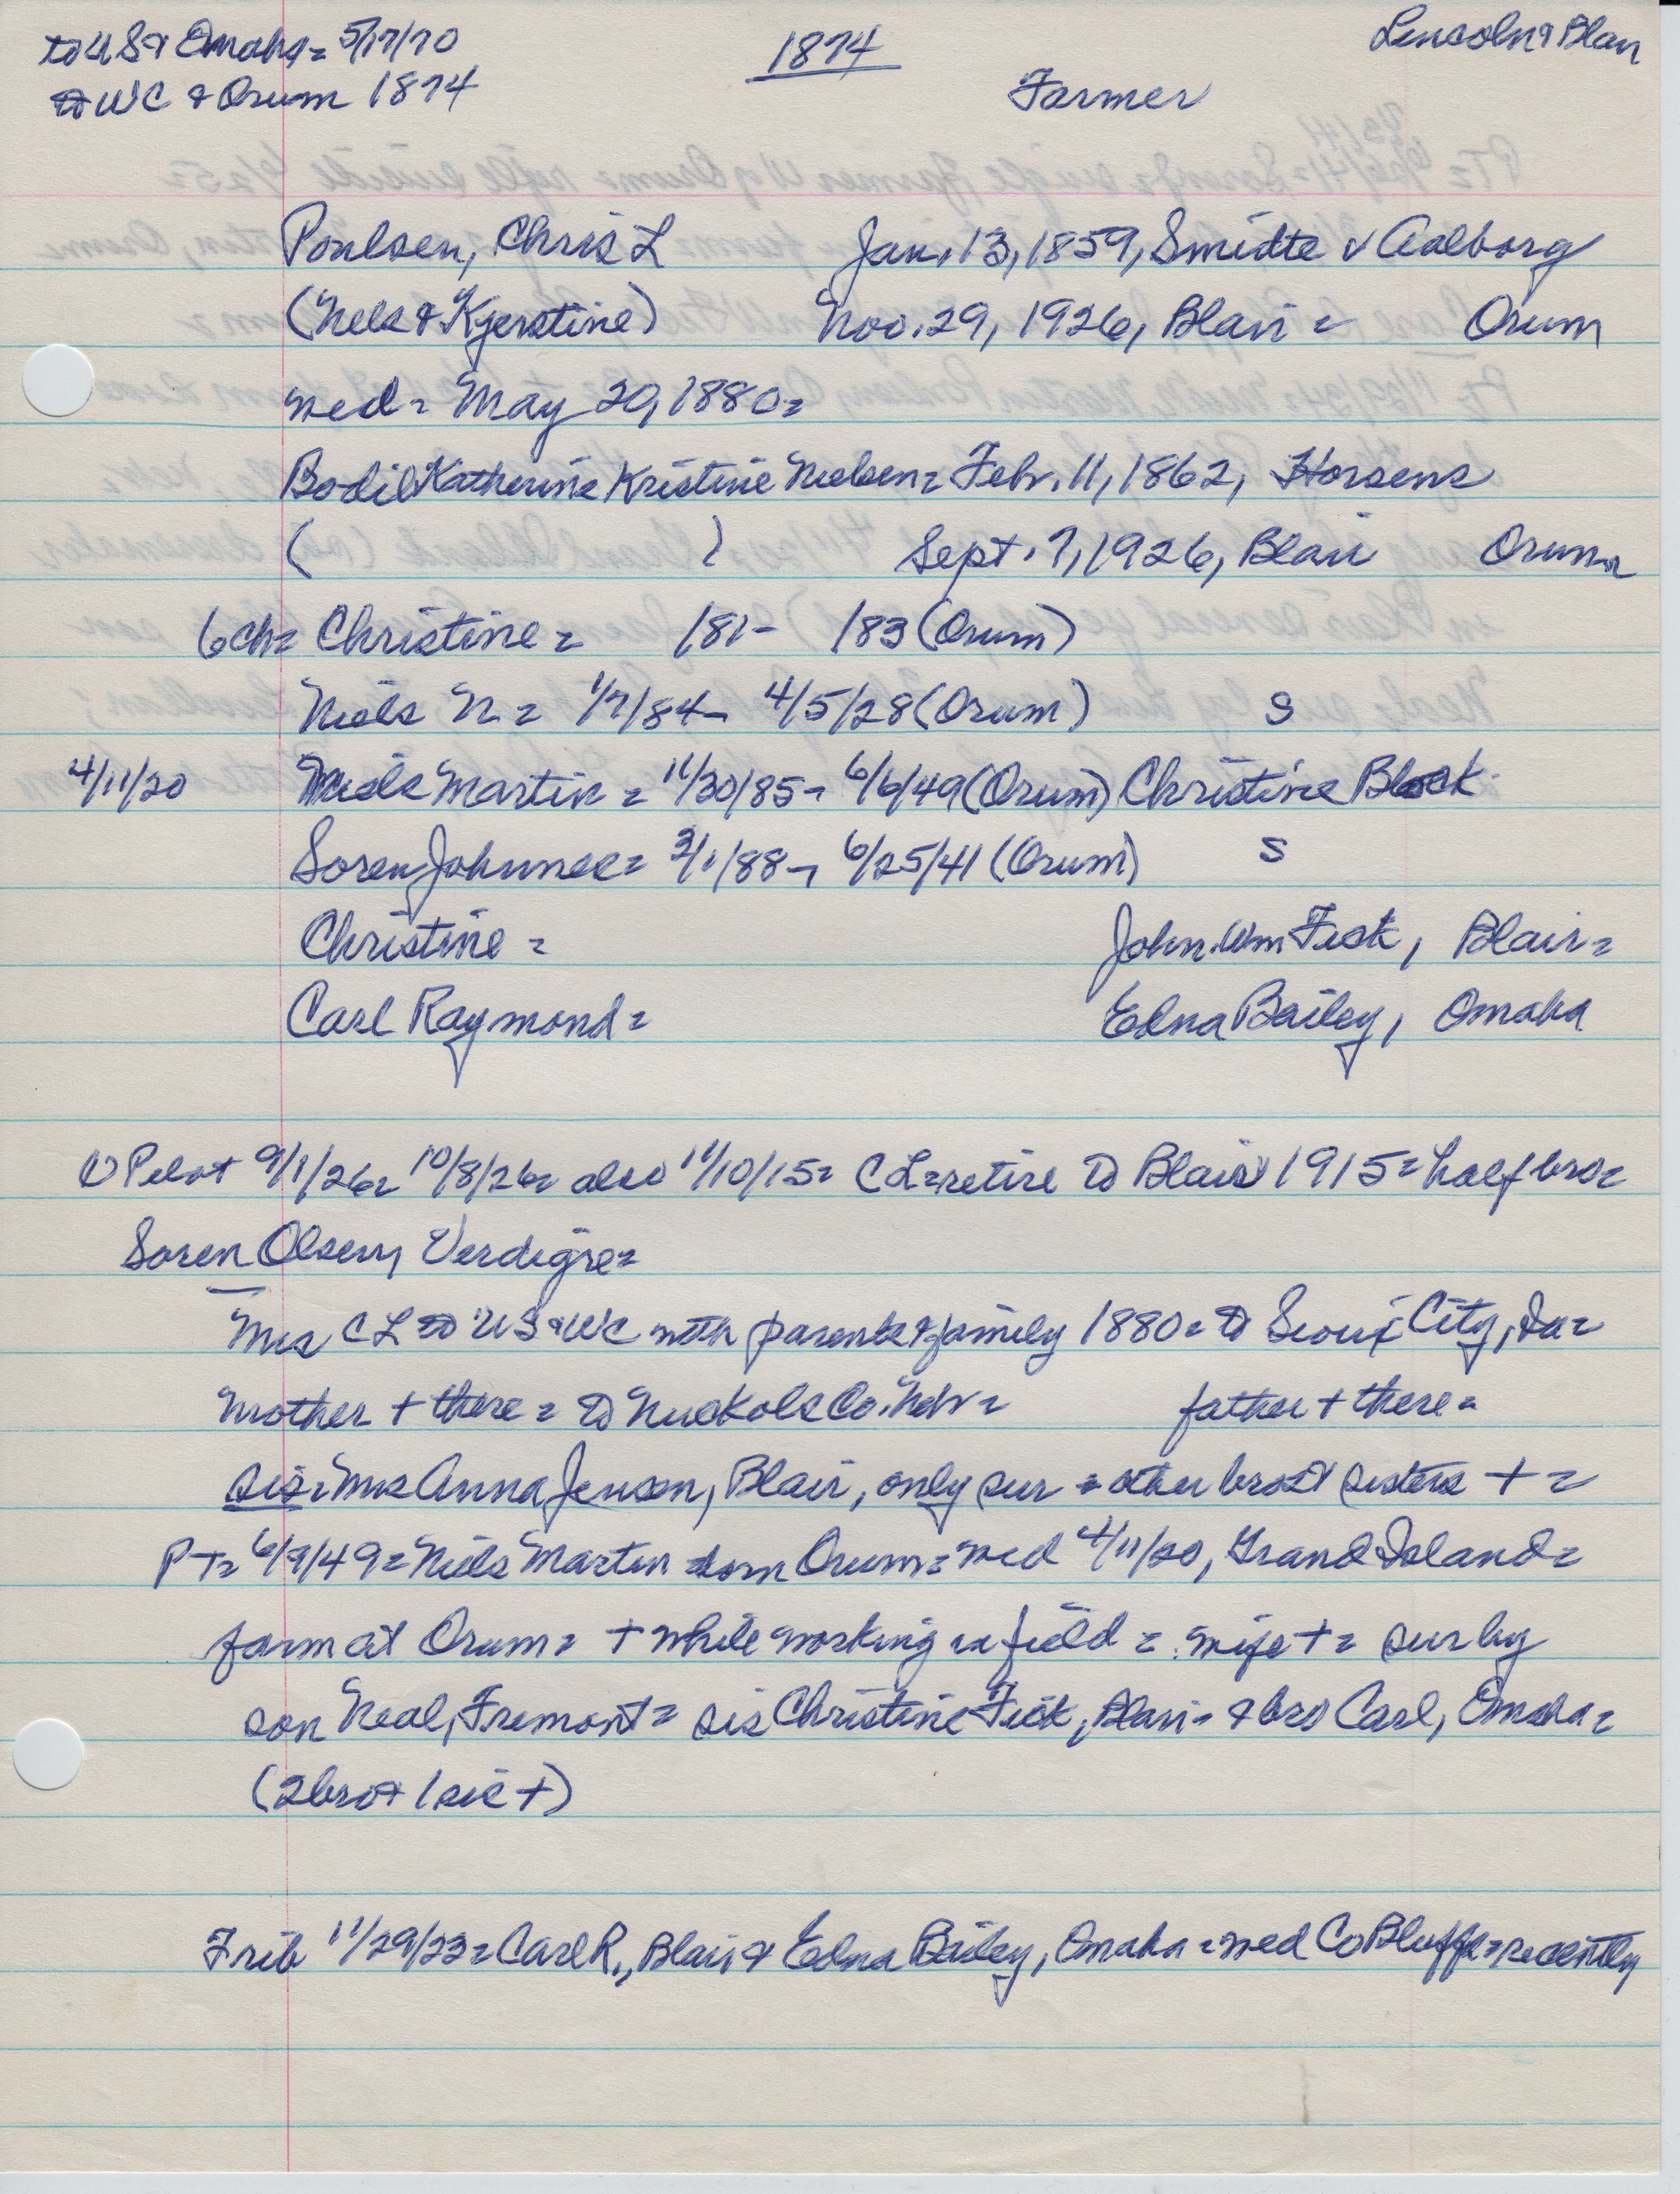 to US & Omaha = 5/17/70
1874
Lincoln & Blair
to WC & Orum 1874
Farmer
Poulsen, Chris L Jan. 13, 1859, Smidte v Aalborg
(Nels & Kjerstine) Nov. 29, 1926, Blair = Orum
wed = May 20, 1880 =
Bodil Katherine Kristine Nielsen = Febr. 11, 1862, Horsens
( ) Sept. 7, 1926, Blair Orum
6 ch = Christine = /81 - /83 (Orum)
Niels N. = 1/7/84 - 4/5/28 (Orum) S
4/11/20 Niels Martin = 11/30/85 - 6/6/49 (Orum) Christine Block
Soren Johnnee = 3/1/88 - 6/25/41 (Orum) S
Christine = John. Wm Fick, Blair =
Carl Raymond = Edna Bailey, Omaha
Pilot 9/1/26 = 10/8/26 = also 11/10/15 = CL = retire to Blair 1915 = half bro =
Soren Olsen, Verdigre =
Mrs CL to US & WC with parents & family 1880 = to Sioux City, Ia =
Mother + there = to Nuckols Co. Nebr = father + there =
sis = Mrs Anna Jensen, Blair, only sur = other bros & sisters + =
PT = 6/9/49 = Niels Martin born Orum = wed 4/11/20, Grand Island =
farm at Orum = + while working in field = wife + = sur by
son Neal, Fremont = sis Christine Fick, Blair - & bro Carl, Omaha =
(2 bro & 1 sis +)
Trib 11/29/23 = Carl R., Blair & Edna Bailey, Omaha = wed Co Bluffs = recently